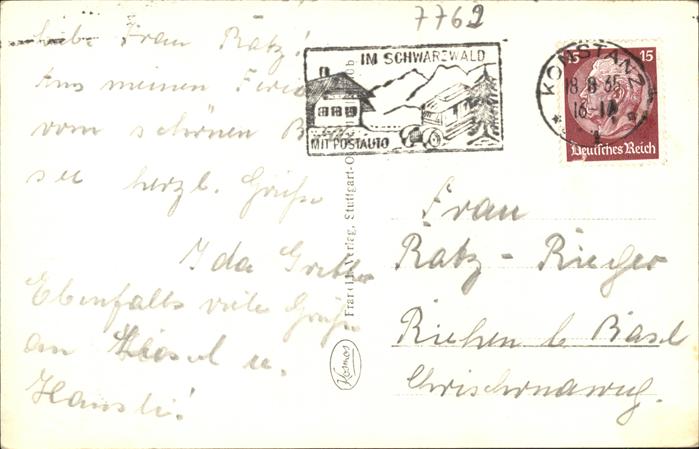 7762
Liebe Frau Ratz!
Aus meinen Ferien
vom schönen Boden
see herzl. Grüße
Ida
Ebenfalls viele Grüße
an Liesel u.
Hansli!
IM SCHWARZWALD
MIT POSTAUTO
KONSTANZ
15
Deutsches Reich
Verlag, Stuttgart-O
Kosmos
Frau
Ratz - Rieger
Riehen b Basel
Chrischonaweg.